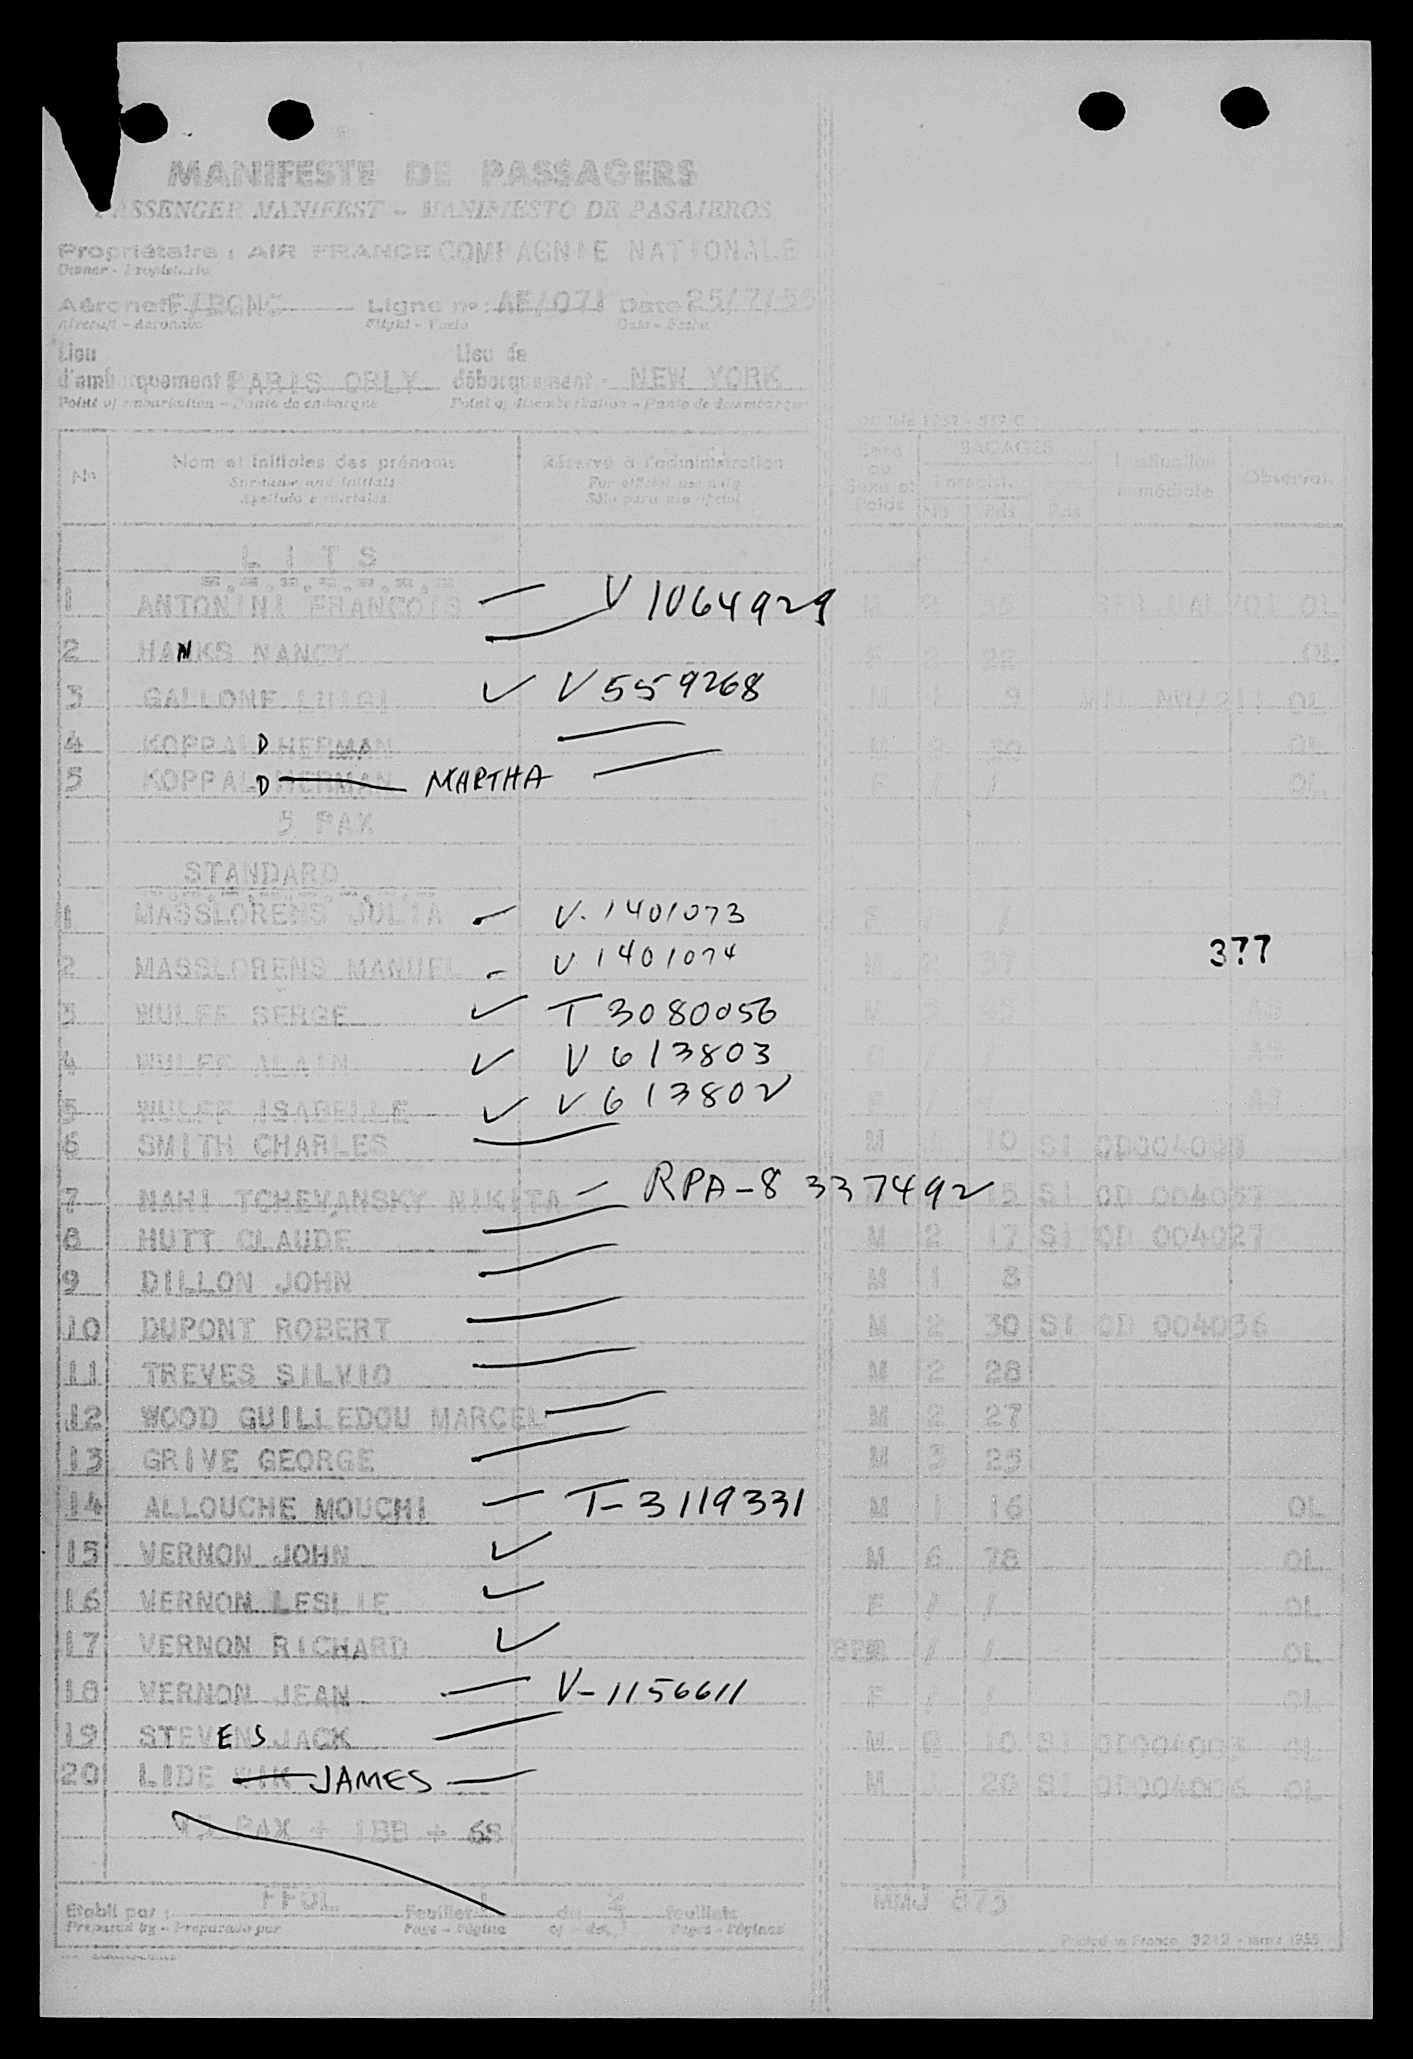 MANIFESTE DE PASSAGERS
PASSENGER MANIFEST - MANIFIESTO DE PASAJEROS
Propriétaire : AIR FRANCE COMPAGNIE NATIONALE
Owner - Propietario
Aéronef F/BGNC Ligne nº : AF/071 Date 25/7/55
Aircraft - Aeronave Flight - Vuelo Date - Fecha
Lieu d'embarquement PARIS ORLY Lieu de débarquement - NEW YORK
Point of embarkation - Punto de embarque Point of disembarkation - Punto de desembarque
Nº Nom et initiales des prénoms Réservé à l'administration BAGAGES Destination immédiate Observat.
Surname and initials For official use only
Apellido e iniciales Sólo para uso oficial
LITS
1 ANTONINI FRANCOIS V 1064929 M OL
2 HANKS NANCY F 22 OL
3 GALLONE LUIGI V 559268 M 1 9 OL
4 KOPPALD HERMAN M OL
5 KOPPALD HERMAN MARTHA F / / OL
5 PAX
STANDARD
1 MASSLORENS JULIA V. 1401073 F / /
2 MASSLORENS MANUEL V 1401074 M 2
377
3 WULFF SERGE T 3080056 M
4 WULFF ALAIN V 613803
5 WULFF ISABELLE V 613802 F
6 SMITH CHARLES M 1 10 SI OD004009
7 NAHI TCHEVANSKY NIKITA RPA-8 337492 15 SI OD 004037
8 HUTT CLAUDE M 2 17 SI OD 004027
9 DILLON JOHN M 1 8
10 DUPONT ROBERT M 2 30 SI OD 004036
11 TREVES SILVIO M 2 28
12 WOOD GUILLEDOU MARCEL M 2 27
13 GRIVE GEORGE M 3 25
14 ALLOUCHE MOUCHI T-3119331 M 1 16 OL
15 VERNON JOHN M 6 78 OL
16 VERNON LESLIE F / / OL
17 VERNON RICHARD / / OL
18 VERNON JEAN V-1156611 F / / OL
19 STEVENS JACK M 10 SI OL
20 LIDE WIK JAMES M 1 20 SI OD004006 OL
PAX + 1BB +
Etabli par : FFOL Feuillet 1 du 2 feuillets MMJ 873
Prepared by - Preparado por Page - Página of - de Pages - Páginas
Printed in France 3212 - mars 1955